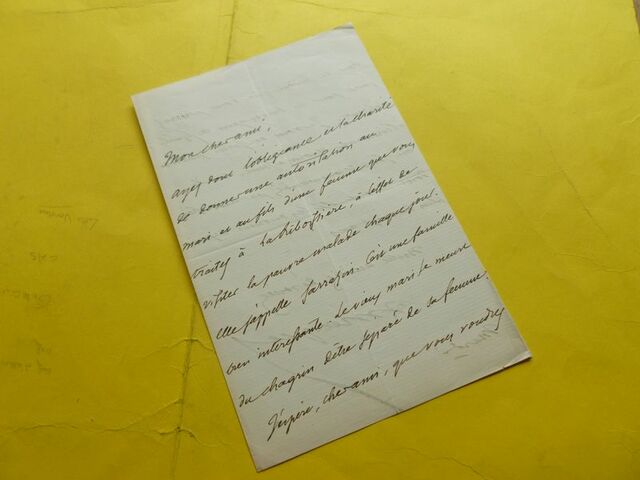 Mon cher ami,
ayez dont l'obligeance et la charité
de donner une autorisation au
mari et au fils d'une femme que vous
traitez à Lariboisière, à l'effet de
visiter la pauvre malade chaque jour.
elle s'appelle Sarrazin. C'est une famille
bien intéressante. Le vieux mari se meurt
du chagrin d'être séparé de sa femme.
J'espère, cher ami, que vous voudrez